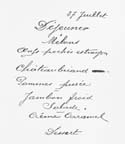 27 Juillet
Déjeuner
Melons
Œufs pochés estragon
Châteaubriand
Pommes purée
Jambon froid
Salade
Crème Caramel
Dessert